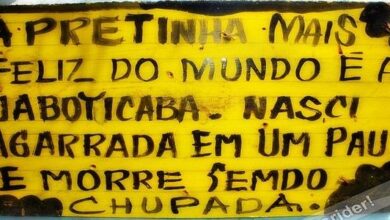 A PRETINHA MAIS
FELIZ DO MUNDO É A
JABOTICABA. NASCI
AGARRADA EM UM PAU
E MORRE SEMDO
CHUPADA.